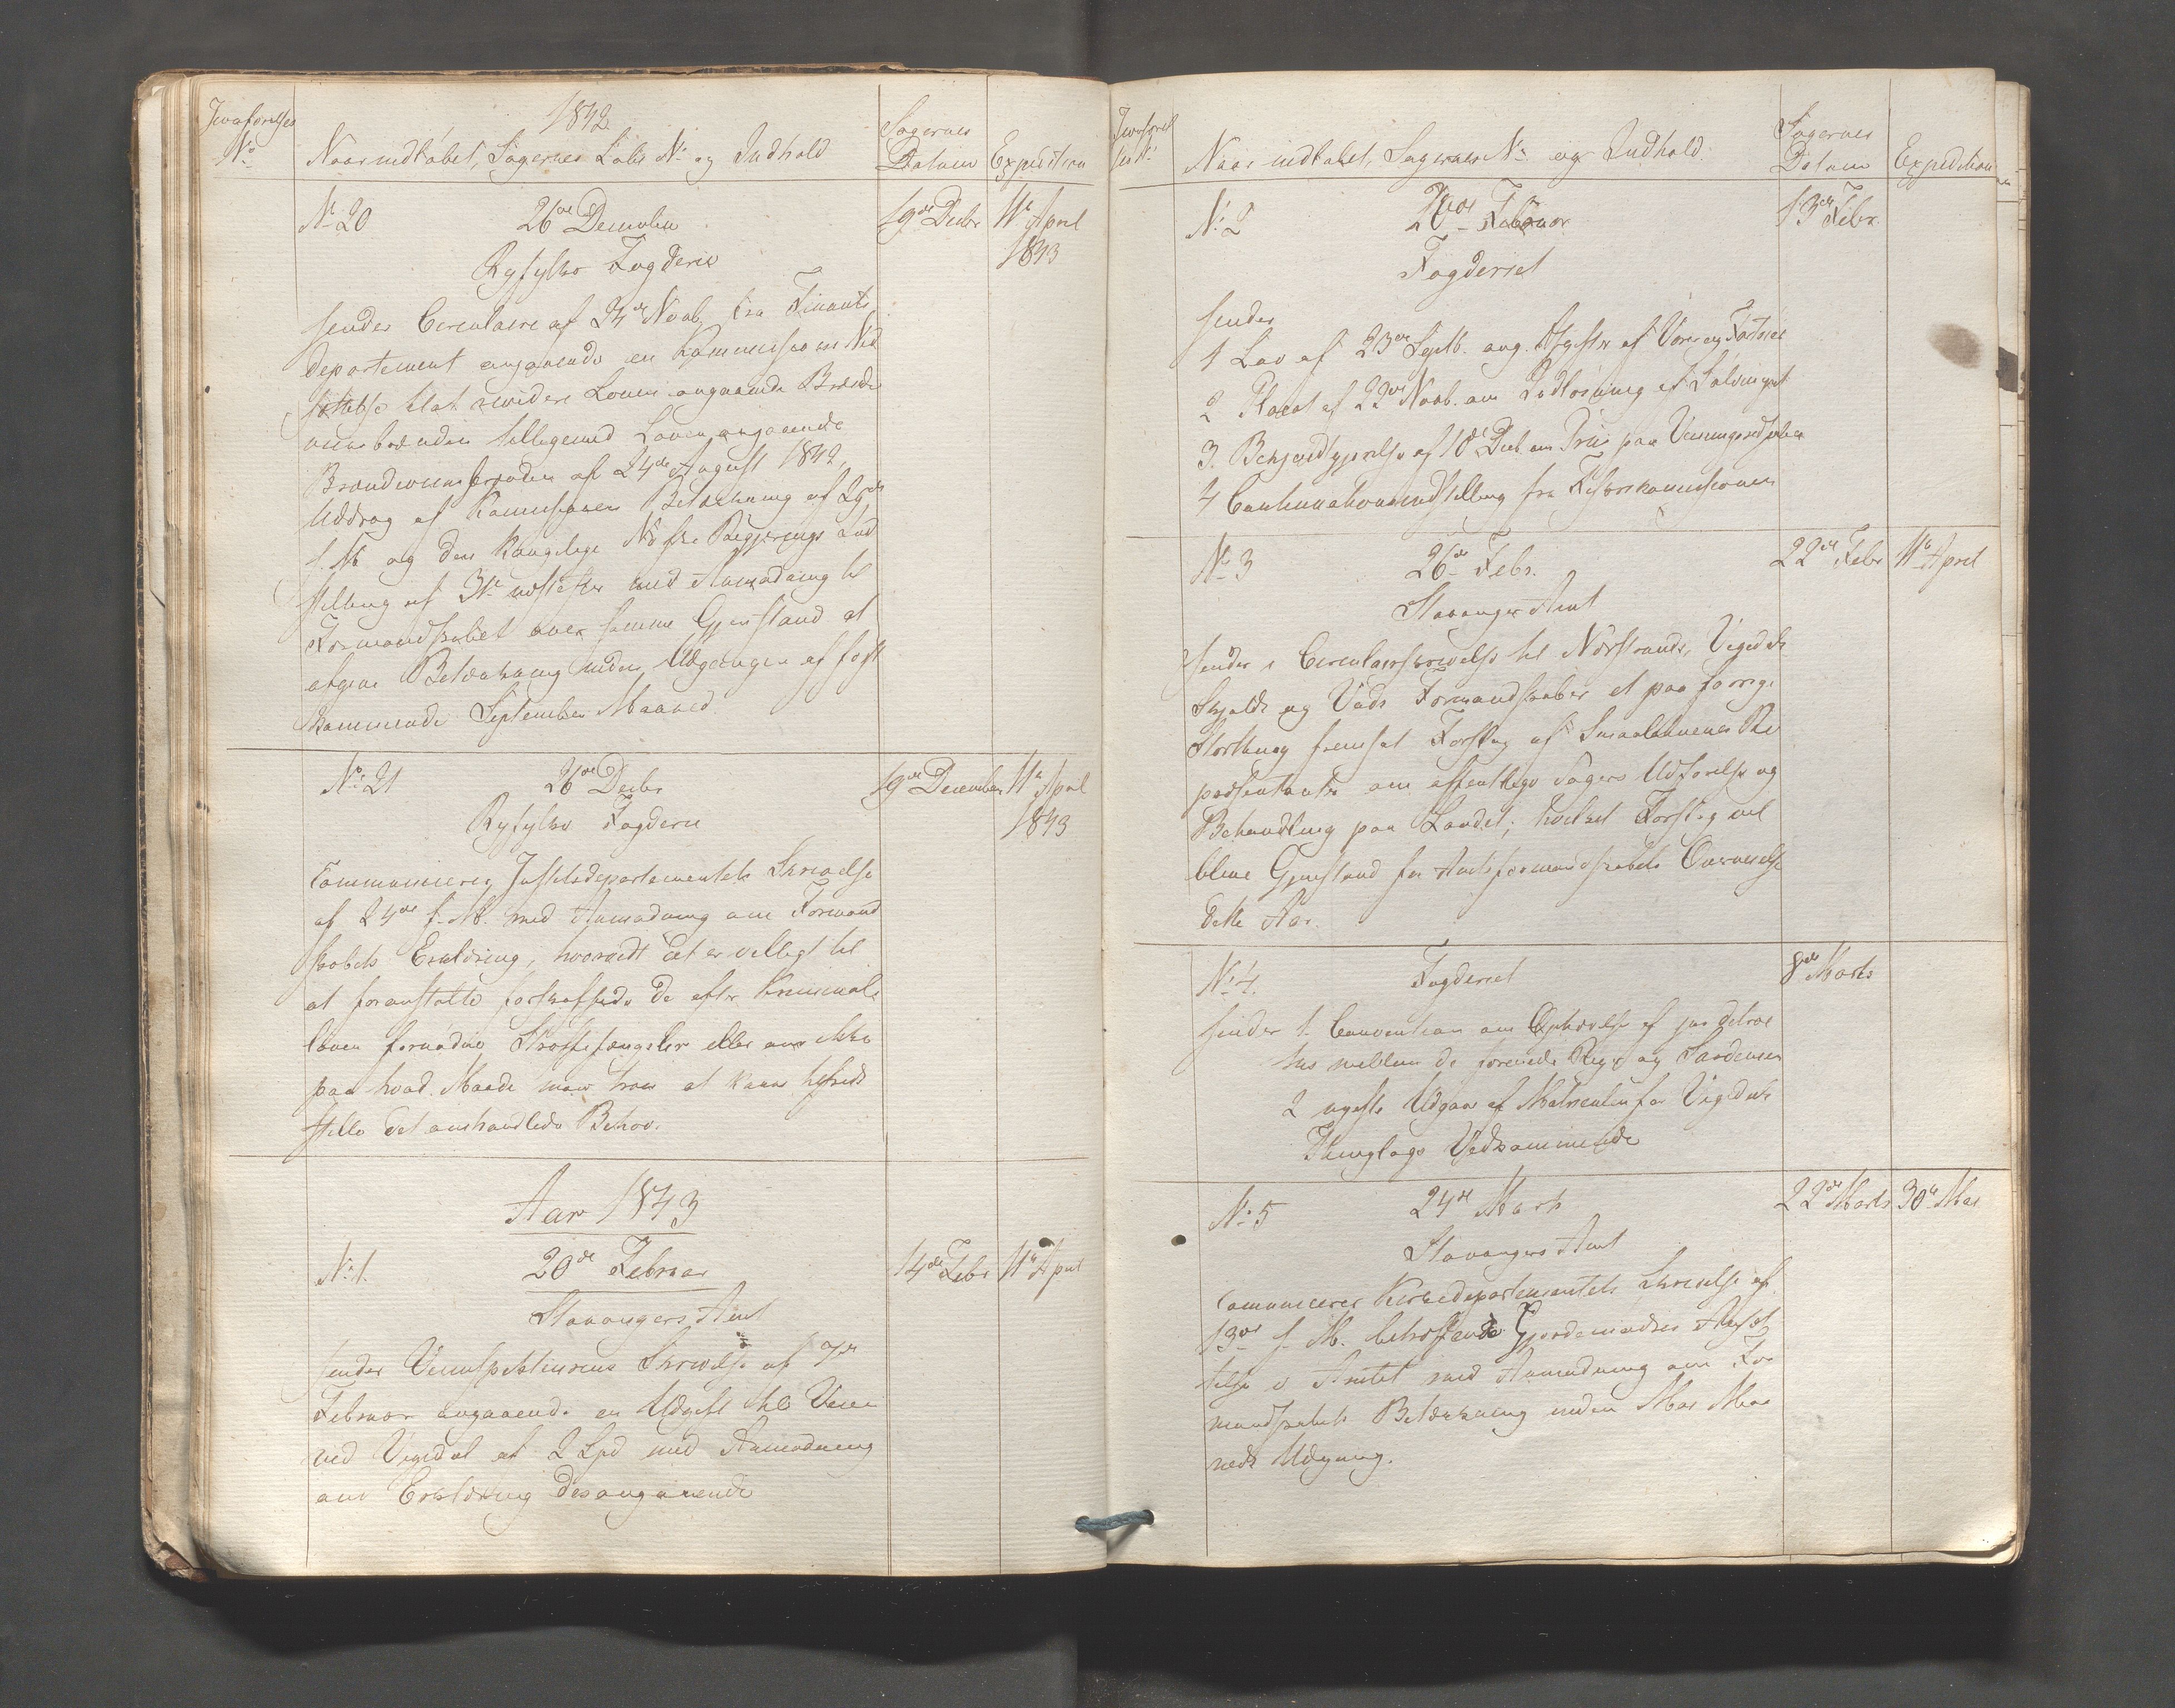 1842
Journaforelses Naar indkobet, Sagernes Løbe No og Indhold Sagernes
No Datum Expedition
No 20 26de December 19de Decbr 11te April
Ryfylke Fogderie 1843
sender Circulaire af 24de Novb. fra Finants
departement angaaende en Kommissions Ned
sættelse til at revidere Loven angaaende Brænde
viinsbrænden tilligemed Loven angaaende
Brændeviinsbrænden af 24de August 1842,
Uddrag af Kommissionens Betænkning af 29de
f. M. og den Kongelige Norske Regjerings Ind
stilling af 31te næstefter med Anmodning til
Formandskabet over samme Gjenstand at
afgive Betænkning inden Udgangen af først
kommende September Maaned.
No 21 26de Decbr 19de December 11te April
Ryfylke Fogderie 1843
Communicerer Justitsdepartementets Skrivelse
af 24de f. M. med Anmodning om Formand
skabets Erklæring, hvorvidt det er villigt til
at foranstalte forskaffede de efter Criminal
loven fornødne Straffefængsler eller om ikke
paa hvad Maade man troer at kunne tilfreds
stille det omhandlede Behov.
Aar 1843
No 1. 20de Februar 14de Febr 11te April
Stavangers Amt
sender Veiinspekteurens Skrivelse af 7de
Februar angaaende en Udgift til Veien
ved Vigedal af 2 Spd med Anmodning
om Erklæring desangaaende
Naar indkobet, Sagernes No og Indhold Sagernes
Datum Expedition
No 2 Februar 13de Febr.
Fogderiet
sender
1 Lov af 23de Septb. ang. Afgifter af Varer og
2 Placat af 22de Novb. om Indløsning af Sølvmynt
3. Bekjendtgjørelse af 10de Decb. om Priis paa Veiningsredskaber
4 indstilling fra Kommissionen
No 3 26de Febr. 22de Febr 11te April
Stavanger Amt
sender i Circulairskrivelse til Nærstrands, Vigedals
Skjolds og Vats Formandskaber et paa forrige
Storthing fremsat Forslag af Smaalehnenes Re
præsentanter om offentlige Sagers Udførelse og
Behandling paa Landet; hvilket Forslag vil
blive Gjenstand for Amtsformandskabets Overveielse
dette Aar.
No 4. Fogderiet 8de Marts
sender 1. Convention om Ophævelse af jus detrac
tus mellem de forenede Riger og Sardinien
2 Udgave af Matriculen for Vigedals
Thinglags Vedkommende
No 5 24de Marts 22de Marts 30te Mai
Stavangers Amt
Communicerer Kirkedepartementets Skrivelse af
13de f. M. betræffende Gjordemødres Ansæt
telse i Amtet med Anmodning om For
mandskabets Betænkning inden Mai Maa
neds Udgang.